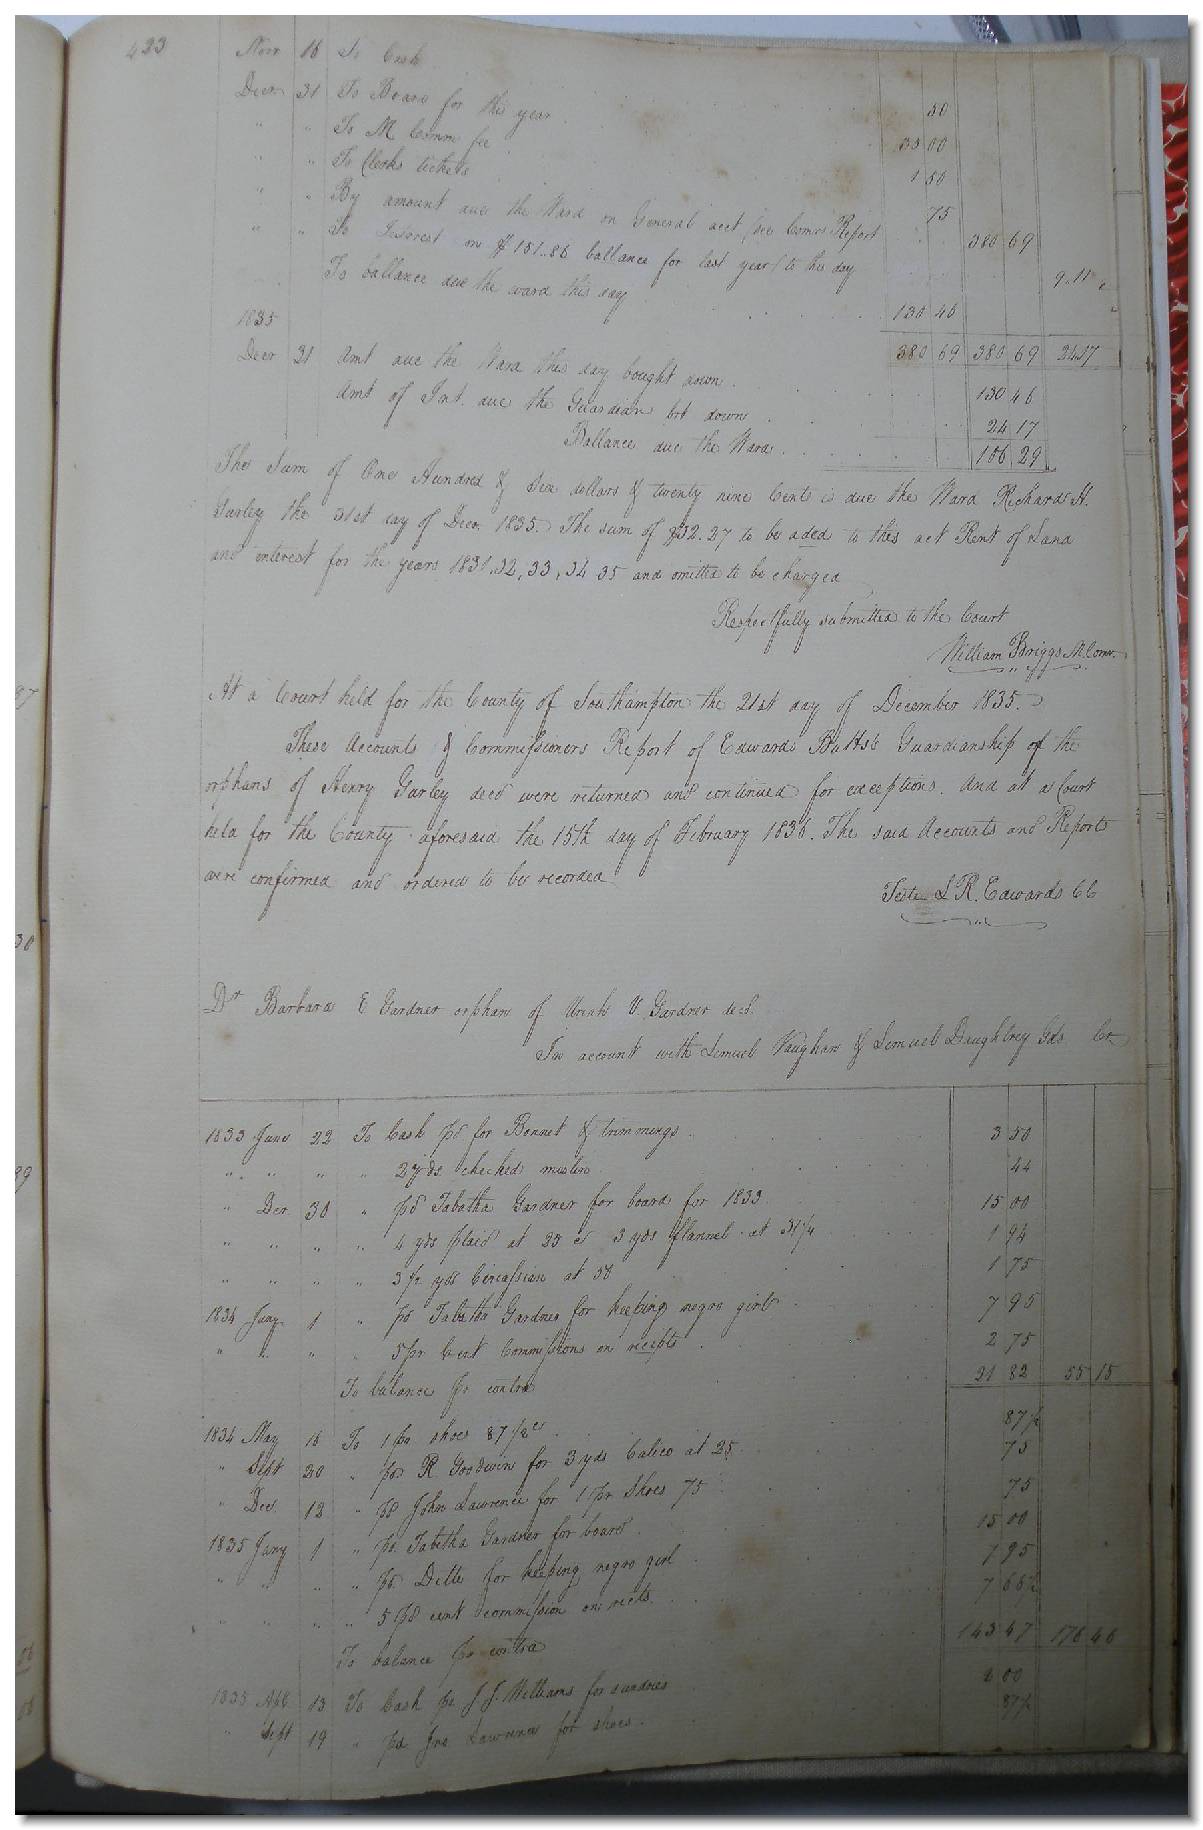 423
Novr 16 To Cash . 50
Decr 31 To Board for the year . 30 00
" " To M Comr fee 1 50
" " To Clerks tickets 75
" " By amount due the Ward on General acct (see Comrs Report 380 69
" " To Interest on $151..86 ballance for last year) to this day 9.11
To ballance due the ward this day 130 46
1835 380 69 380 69 24.17
Decr 31 Amt due the Ward this day bought down . 130 46
Amt of Int. due the Guardian brt down . 24 17
Ballance due the Ward . 106 29
The Sum of One Hundred & Six dollars & twenty nine Cents is due the Ward Richard H.
Gurley the 31st day of Decr. 1835. The sum of $32.27 to be aded to this act Rent of Land
and interest for the years 1831, 32, 33, 34 35 and omitted to be charged
Respectfully submitted to the Court
William Briggs M. Comr.
At a Court held for the County of Southampton the 21st day of December 1835.
These Accounts & Commissioners Report of Edwards Butts's Guardianship of the
orphans of Henry Gurley decd were returned and continued for exceptions. And at a Court
held for the County aforesaid the 15th day of February 1836. The said Accounts and Reports
were confirmed and ordered to be recorded
Teste L R. Edwards CC
Dr Barbara E Gardner orphan of Uriah V. Gardner decd.
In account with Lemuel Vaughan & Lemuel Daughtrey Gds Cr
1833 June 22 To Cash pd for Bonnet & trimmings . 3 50
" " " " 2 yds checked muslin 44
" Der 30 " pd Tabatha Gardner for board for 1833 15 00
" " " " 4 yds plaid at 25 & 3 yds flannel at 31 1/4 1 94
" " " " 3 1/2 yds Circassian at 50 1 75
1834 Jany 1 " pd Tabatha Gardner for keeping negro girl . 7 95
" " " " 5 pr Cent Commissions on receipts . 2 75
To balance pr contra 21 82 55 15
1834 May 16 To 1 pr shoes 87 1/2 cs . 87 1/2
" Sept 20 " pd R Goodwin for 3 yds Calico at 25 75
" Dec 12 " pd John Lawrence for 1 pr Shoes 75 75
1835 Jany 1 " pd Tabitha Gardner for board . 15 00
" " " " pd Ditto for keeping negro girl 7 95
" " " " 5 pr cent commission on rects. 7 66 1/2
To balance pr contra 143 47 176 46
1835 Apl 13 To Cash pd J J. Williams for sundries 2 00
" Sept 19 " pd Jno Lawrence for shoes . 87 1/2